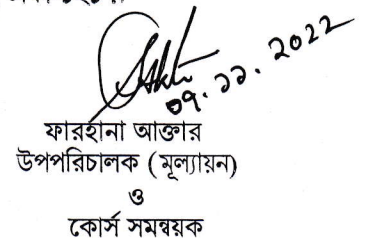 ০৭.১১.২০২২
ফারহানা আক্তার
উপপরিচালক (মূল্যায়ন)
ও
কোর্স সমন্বয়ক